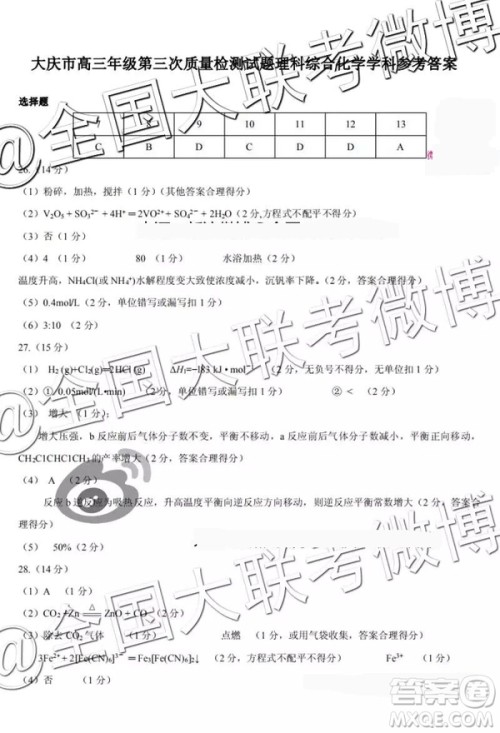 大庆市高三年级第三次质量检测试题理科综合化学学科参考答案
选择题
7 8 9 10 11 12 13
C B D C D D A
26.(14分)
(1)粉碎，加热，搅拌(1分)(其他答案合理得分)
(2)V₂O₅+SO₃²⁻+4H⁺=2VO²⁺+SO₄²⁻+2H₂O(2分,方程式不配平不得分)
(3)否(1分)
(4)4(1分) 80(1分) 水浴加热(2分)
温度升高，NH₄Cl(或NH₄⁺)水解程度变大致使浓度减小，沉钒率下降。(2分，答案合理得分)
(5)0.4mol/L(2分，单位错写或漏写扣1分)
(6)3:10(2分)
27.(15分)
(1) H₂(g)+Cl₂(g)=2HCl(g) ΔH₁=-183 kJ•mol⁻(2分，无负号不得分，无单位扣1分)
(2)① 0.05mol/(L•min)(2分，单位错写或漏写扣1分) ② <(2分)
(3) 增大(1分)；
增大压强，b反应前后气体分子数不变，平衡不移动，a反应前后气体分子数减小，平衡正向移动，
CH2C1CHC1CH3的产率增大(2分)
(4) A(2分)
(b反应逆反应为吸热反应，升高温度平衡向逆反应方向移动，则逆反应平衡常数增大)(2分，答案合
理得分)
(5) 50%(2分)
28.(14分)
(1)A(1分)
(2)CO₂+Zn=△=ZnO+CO(2分)
(3)除去CO₂气体(1分) 点燃(1分，或用气袋收集，答案合理得分)
3Fe²⁺+2[Fe(CN)₆]³⁻=Fe₃[Fe(CN)₆]₂↓(2分，方程式不配平不得分) Fe³⁺(1分)
(4)否(1分)
@全国大联考微博
@全国大联考微博
@全国大联考微博
答案圈
MXQE.COM